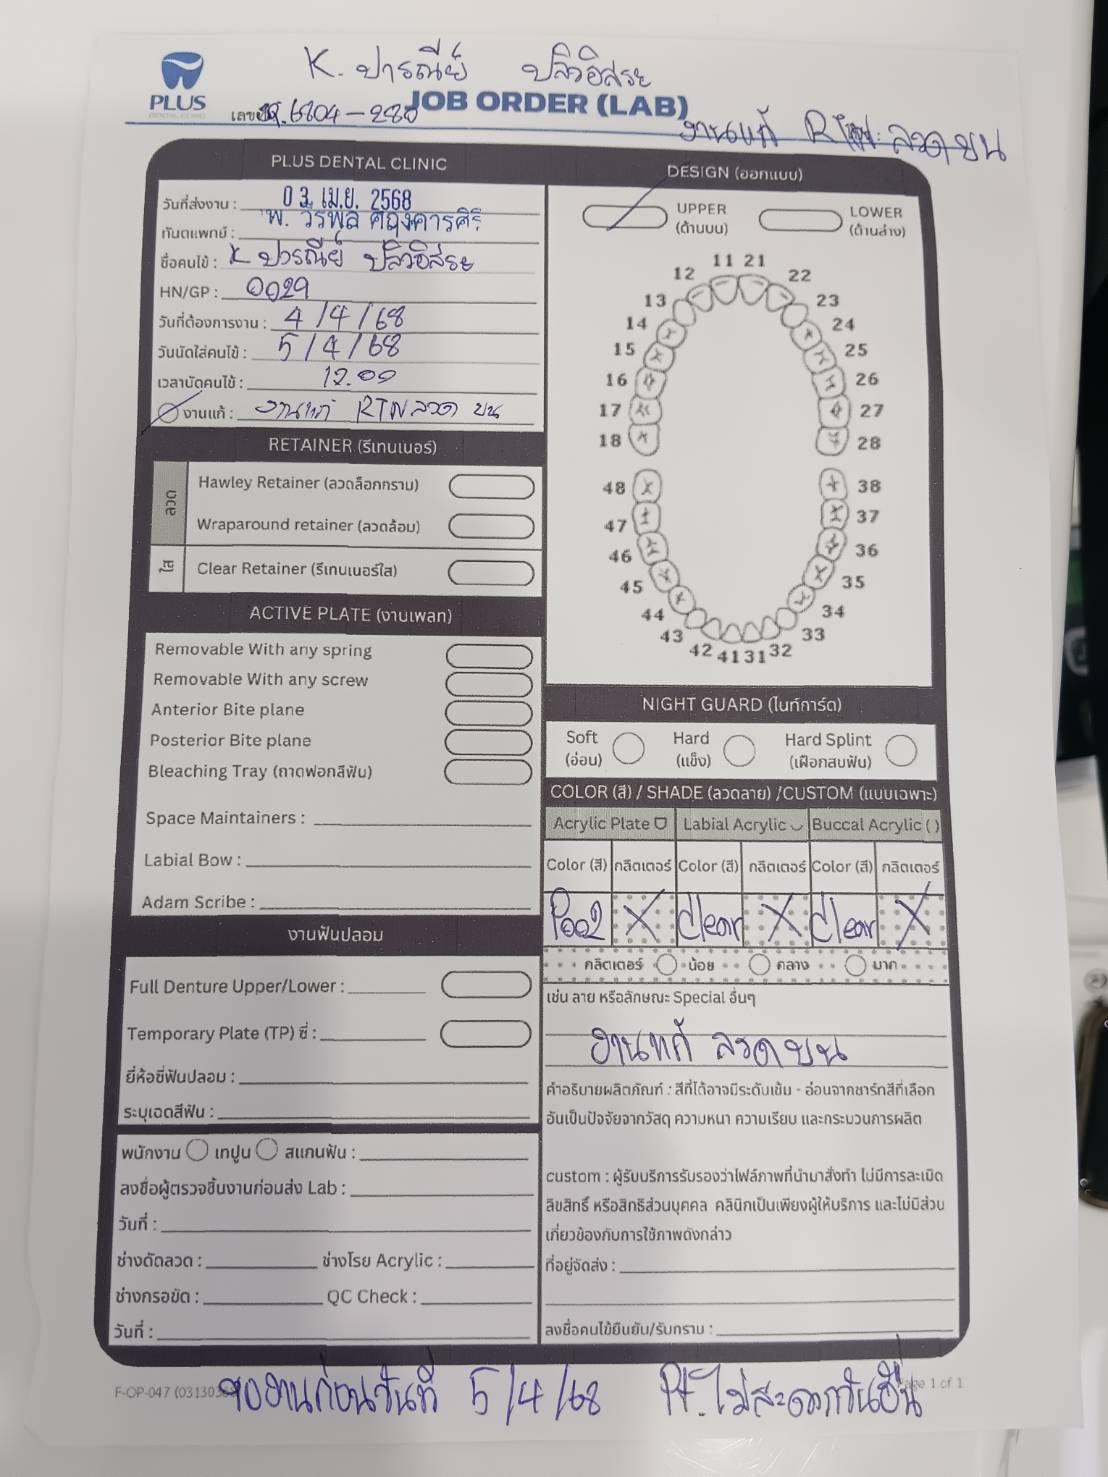 K. ปารณีย์ ปลิวอิสระ
PLUS
DENTAL CLINIC
JOB ORDER (LAB)
เลขที่ 6804-280
งานแก้ RTN ลวด บน
PLUS DENTAL CLINIC
วันที่ส่งงาน : 03 เม.ย. 2568
ทันตแพทย์ : พ. วีรพล
ชื่อคนไข้ : K ปารณีย์ ปลิวอิสระ
HN/GP : 0029
วันที่ต้องการงาน : 4/4/68
วันนัดใส่คนไข้ : 5/4/68
เวลานัดคนไข้ : 12.00
งานแก้ : งานแก้ RTN ลวด บน
RETAINER (รีเทนเนอร์)
ลวด
Hawley Retainer (ลวดล็อกกราม)
Wraparound retainer (ลวดล้อม)
ใส
Clear Retainer (รีเทนเนอร์ใส)
ACTIVE PLATE (งานเพลท)
Removable With any spring
Removable With any screw
Anterior Bite plane
Posterior Bite plane
Bleaching Tray (ถาดฟอกสีฟัน)
Space Maintainers :
Labial Bow :
Adam Scribe :
งานฟันปลอม
Full Denture Upper/Lower :
Temporary Plate (TP) ซี่ :
ยี่ห้อซี่ฟันปลอม :
ระบุเฉดสีฟัน :
พนักงาน เทปูน สแกนฟัน :
ลงชื่อผู้ตรวจชิ้นงานก่อนส่ง Lab :
วันที่ :
ช่างดัดลวด : ช่างโรย Acrylic :
ช่างกรอขัด : QC Check :
วันที่ :
DESIGN (ออกแบบ)
UPPER
(ด้านบน)
LOWER
(ด้านล่าง)
11 21
12 22
13 23
14 24
15 25
16 26
17 27
18 28
48 38
47 37
46 36
45 35
44 34
43 33
42 41 31 32
NIGHT GUARD (ไนท์การ์ด)
Soft
(อ่อน)
Hard
(แข็ง)
Hard Splint
(เฝือกสบฟัน)
COLOR (สี) / SHADE (ลวดลาย) /CUSTOM (แบบเฉพาะ)
Acrylic Plate Labial Acrylic Buccal Acrylic ( )
Color (สี) กลิตเตอร์ Color (สี) กลิตเตอร์ Color (สี) กลิตเตอร์
P002 X Clear X Clear X
กลิตเตอร์ น้อย กลาง มาก
เช่น ลาย หรือลักษณะ Special อื่นๆ
งานแก้ ลวด บน
คำอธิบายผลิตภัณฑ์ : สีที่ได้อาจมีระดับเข้ม - อ่อนจากชาร์ทสีที่เลือก
อันเป็นปัจจัยจากวัสดุ ความหนา ความเรียบ และกระบวนการผลิต
custom : ผู้รับบริการรับรองว่าไฟล์ภาพที่นำมาสั่งทำ ไม่มีการละเมิด
ลิขสิทธิ์ หรือสิทธิส่วนบุคคล คลินิกเป็นเพียงผู้ให้บริการ และไม่มีส่วน
เกี่ยวข้องกับการใช้ภาพดังกล่าว
ที่อยู่จัดส่ง :
ลงชื่อคนไข้ยืนยัน/รับทราบ :
F-OP-047 (03130
Page 1 of 1
ของานก่อนวันที่ 5/4/68 Pt. ไม่สะดวกวันอื่น